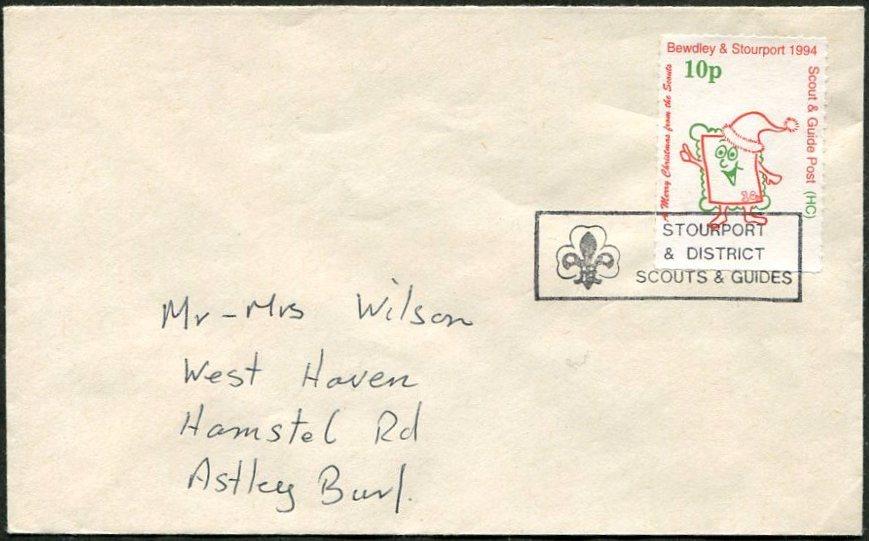 Bewdley & Stourport 1994
10p
A Merry Christmas from the Scouts
Scout & Guide Post (HC)
STOURPORT
& DISTRICT
SCOUTS & GUIDES
Mr - Mrs Wilson
West Haven
Hamstel Rd
Astley Burf.